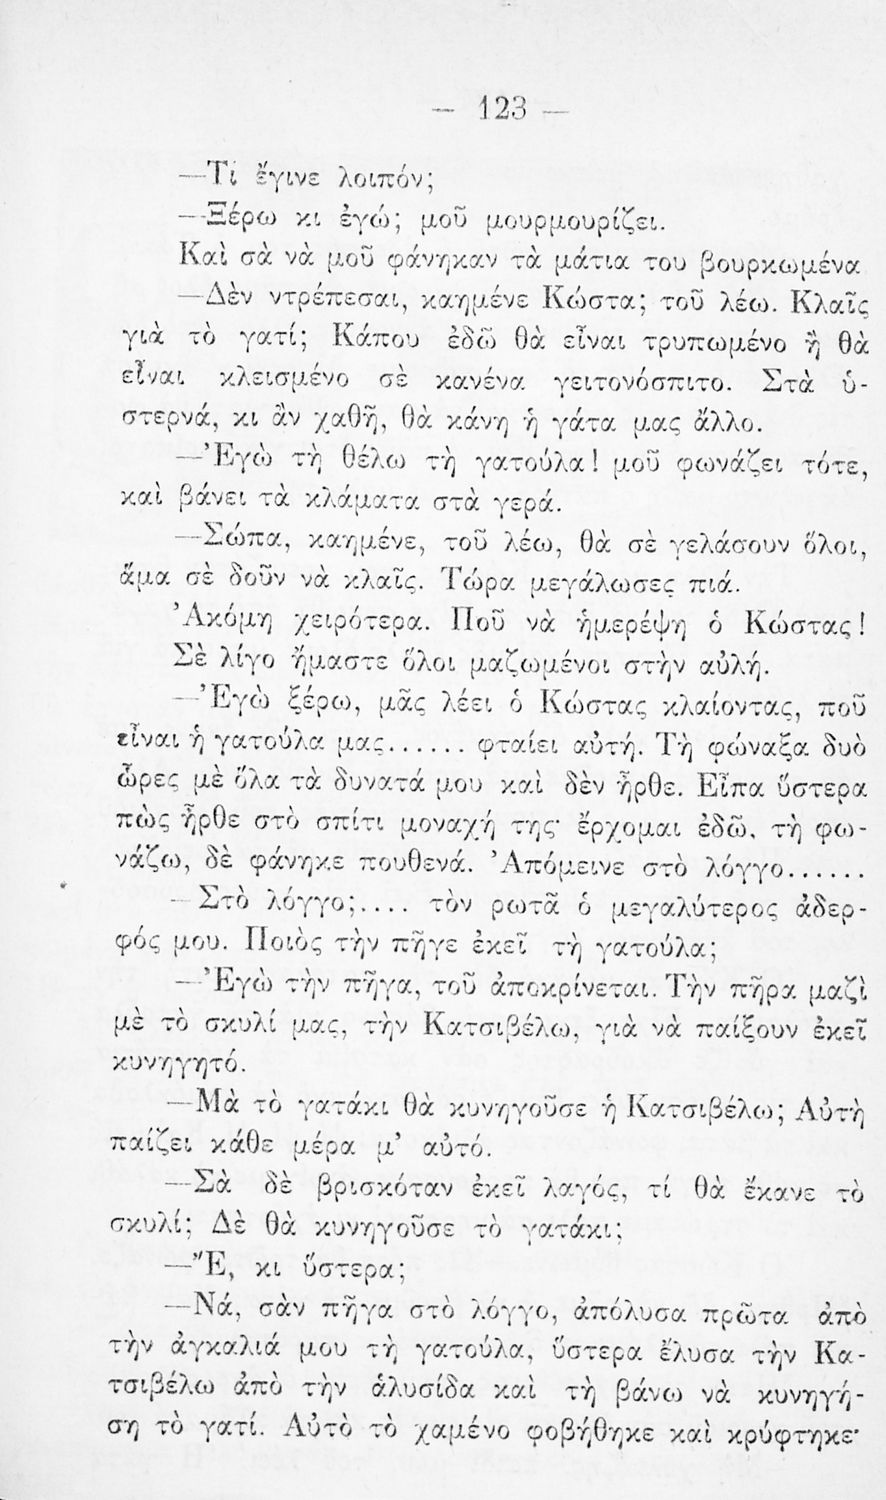 — 123 —
—Τί ἔγινε λοιπόν;
—Ξέρω κι ἐγώ; μοῦ μουρμουρίζει.
Καὶ σὰ νὰ μοῦ φάνηκαν τὰ μάτια του βουρκωμένα
—Δὲν ντρέπεσαι, καημένε Κώστα; τοῦ λέω. Κλαῖς
γιὰ τὸ γατί; Κάπου ἐδῶ θὰ εἶναι τρυπωμένο ἢ θὰ
εἶναι κλεισμένο σὲ κανένα γειτονόσπιτο. Στὰ ὑ-
στερνά, κι ἂν χαθῆ, θὰ κάνη ἡ γάτα μας ἄλλο.
—Ἐγὼ τὴ θέλω τὴ γατούλα! μοῦ φωνάζει τότε,
καὶ βάνει τὰ κλάματα στὰ γερά.
—Σώπα, καημένε, τοῦ λέω, θὰ σὲ γελάσουν ὅλοι,
ἅμα σὲ δοῦν νὰ κλαῖς. Τώρα μεγάλωσες πιά.
Ἀκόμη χειρότερα. Ποῦ νὰ ἡμερέψη ὁ Κώστας!
Σὲ λίγο ἤμαστε ὅλοι μαζωμένοι στὴν αὐλή.
—Ἐγὼ ξέρω, μᾶς λέει ὁ Κώστας κλαίοντας, ποῦ
εἶναι ἡ γατούλα μας...... φταίει αὐτή. Τὴ φώναξα δυὸ
ὧρες μὲ ὅλα τὰ δυνατά μου καὶ δὲν ἦρθε. Εἶπα ὕστερα
πὼς ἦρθε στὸ σπίτι μοναχή της· ἔρχομαι ἐδῶ, τὴ φω-
νάζω, δὲ φάνηκε πουθενά. Ἀπόμεινε στὸ λόγγο......
—Στὸ λόγγο;.... τὸν ρωτᾶ ὁ μεγαλύτερος ἀδερ-
φός μου. Ποιὸς τὴν πῆγε ἐκεῖ τὴ γατούλα;
—Ἐγὼ τὴν πῆγα, τοῦ ἀποκρίνεται. Τὴν πῆρα μαζὶ
μὲ τὸ σκυλί μας, τὴν Κατσιβέλω, γιὰ νὰ παίξουν ἐκεῖ
κυνηγητό.
—Μὰ τὸ γατάκι θὰ κυνηγοῦσε ἡ Κατσιβέλω; Αὐτὴ
παίζει κάθε μέρα μ’ αὐτό.
—Σὰ δὲ βρισκόταν ἐκεῖ λαγός, τί θὰ ἔκανε τὸ
σκυλί; Δὲ θὰ κυνηγοῦσε τὸ γατάκι;
—Ἔ, κι ὕστερα;
—Νά, σὰν πῆγα στὸ λόγγο, ἀπόλυσα πρῶτα ἀπὸ
τὴν ἀγκαλιά μου τὴ γατούλα, ὕστερα ἔλυσα τὴν Κα-
τσιβέλω ἀπὸ τὴν ἁλυσίδα καὶ τὴ βάνω νὰ κυνηγή-
ση τὸ γατί. Αὐτὸ τὸ χαμένο φοβήθηκε καὶ κρύφτηκε·